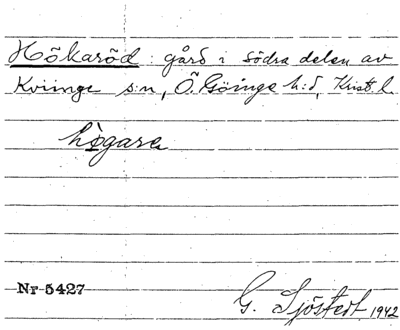 Hökaröd : gård i södra delen av
Kviinge s:n, Ö. Göinge h:d, Krist. l.
högare
Nr 5427
G. Sjöstedt 1942